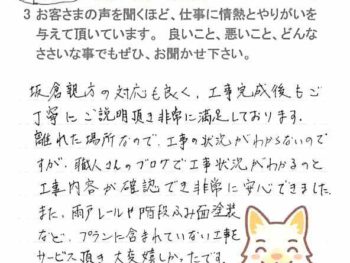 3 お客さまの声を聞くほど、仕事に情熱とやりがいを
与えて頂いています。 良いこと、悪いこと、どんな
ささいな事でもぜひ、お聞かせ下さい。
坂倉親方の対応も良く、工事完成後もご
丁寧にご説明頂き非常に満足しております。
離れた場所なので、工事の状況がわからないので
すが、職人さんのブログで工事状況がわかるのと
工事内容が確認でき非常に安心できました。
また、雨戸レールや階段ふみ面塗装
など、プランに含まれていない工事を
サービス頂き大変嬉しかったです。